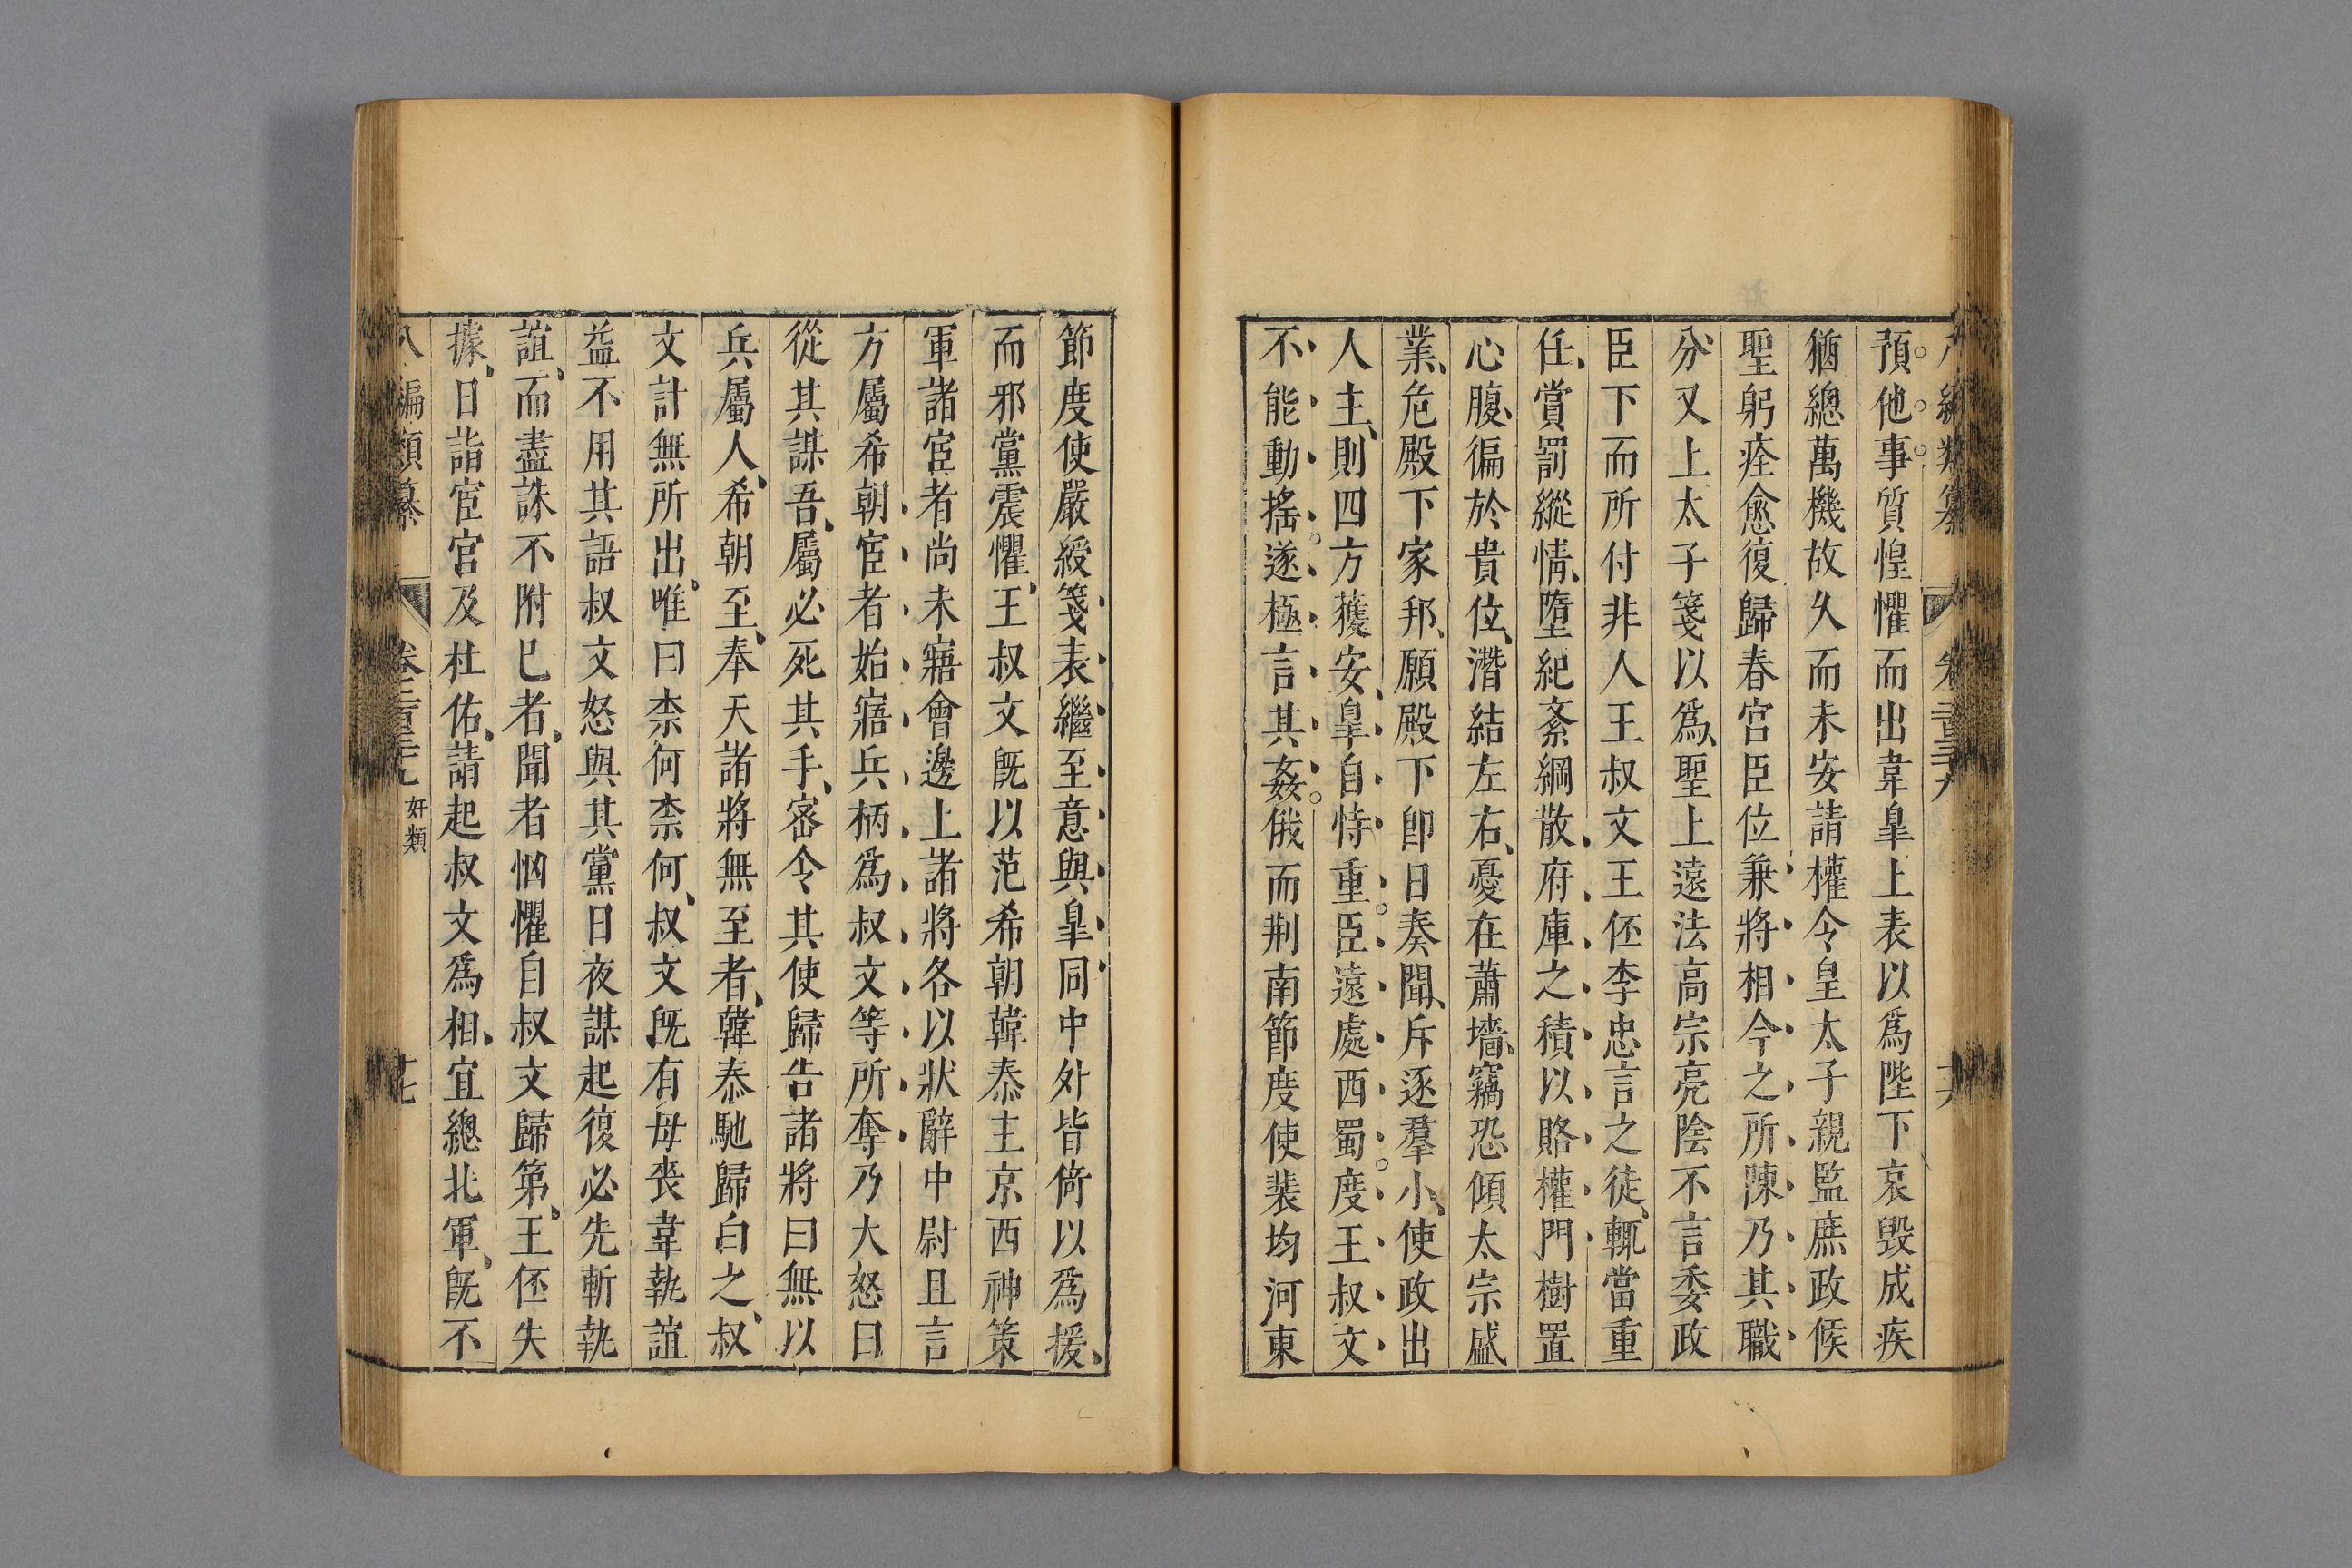 預他事質惶懼而出韋臯上表以爲陛下哀毀成疾
猶總萬機故久而未安請權令皇太子親監庶政候
聖躬痊愈復歸春宮臣位兼將相今之所陳乃其職
分又上太子箋以爲聖上遠法高宗亮陰不言委政
臣下而所付非人王叔文王伾李忠言之徒輒當重
任賞罰縱情墮紀紊綱散府庫之積以賂權門樹置
心腹徧於貴位潛結左右憂在蕭墻竊恐傾太宗盛
業危殿下家邦願殿下卽日奏聞斥逐羣小使政出
人主則四方獲安臯自恃重臣遠處西蜀度王叔文
不能動搖遂極言其姦俄而荆南節度使裴均河東
節度使嚴綬箋表繼至意與臯同中外皆倚以爲援
而邪黨震懼王叔文旣以范希朝韓泰主京西神策
軍諸宦者尚未寤會邊上諸將各以狀辭中尉且言
方屬希朝宦者始寤兵柄爲叔文等所奪乃大怒曰
從其謀吾屬必死其手密令其使歸告諸將曰無以
兵屬人希朝至奉天諸將無至者韓泰馳歸白之叔
文計無所出唯曰柰何柰何叔文旣有母喪韋執誼
益不用其語叔文怒與其黨日夜謀起復必先斬執
誼而盡誅不附巳者聞者恟懼自叔文歸第王伾失
據日詣宦官及杜佑請起叔文爲相宜總北軍旣不
八編類纂 卷二百三十九 奸類 十七